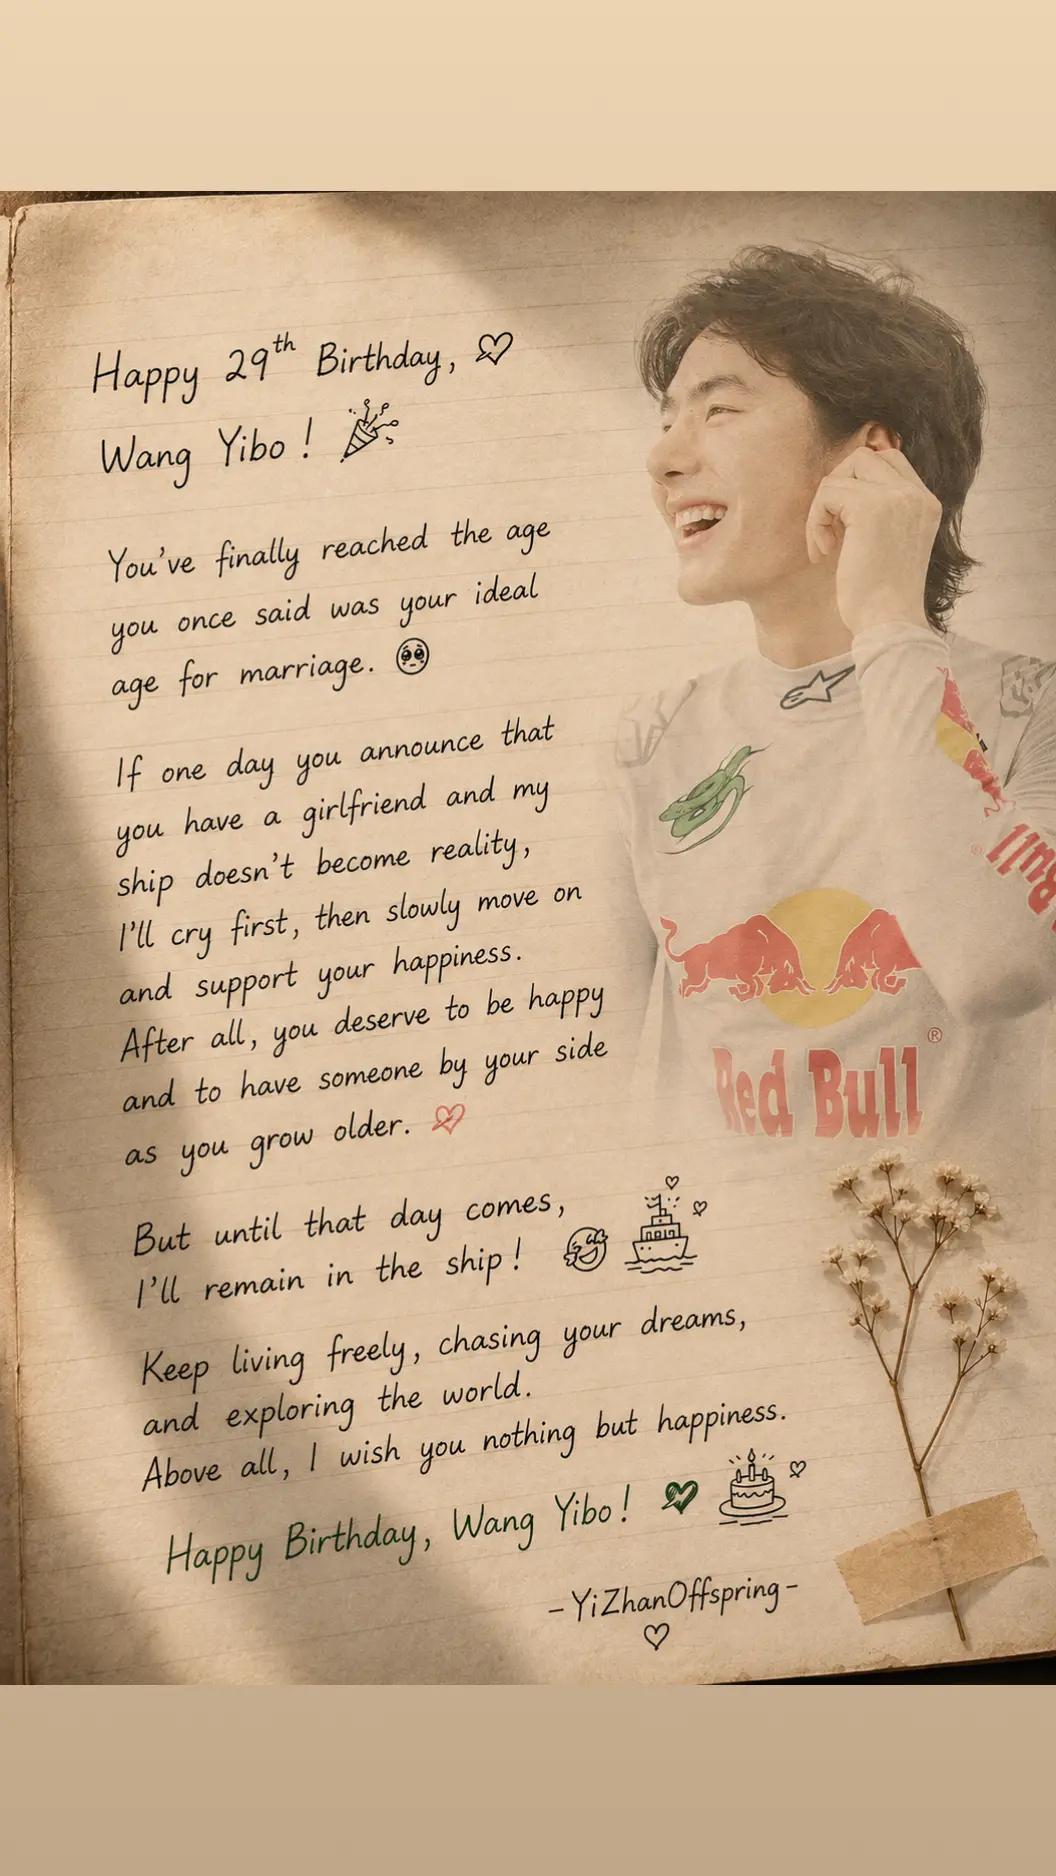 Happy 29th Birthday, ♡
Wang Yibo! 🎉
You've finally reached the age
you once said was your ideal
age for marriage. 🥹
If one day you announce that
you have a girlfriend and my
ship doesn't become reality,
I'll cry first, then slowly move on
and support your happiness.
After all, you deserve to be happy
and to have someone by your side
as you grow older. ♡
But until that day comes,
I'll remain in the ship! 😅 🚢
Keep living freely, chasing your dreams,
and exploring the world.
Above all, I wish you nothing but happiness.
Happy Birthday, Wang Yibo! 💚 🎂
-YiZhanOffspring-
♡
Red Bull
®
Bull